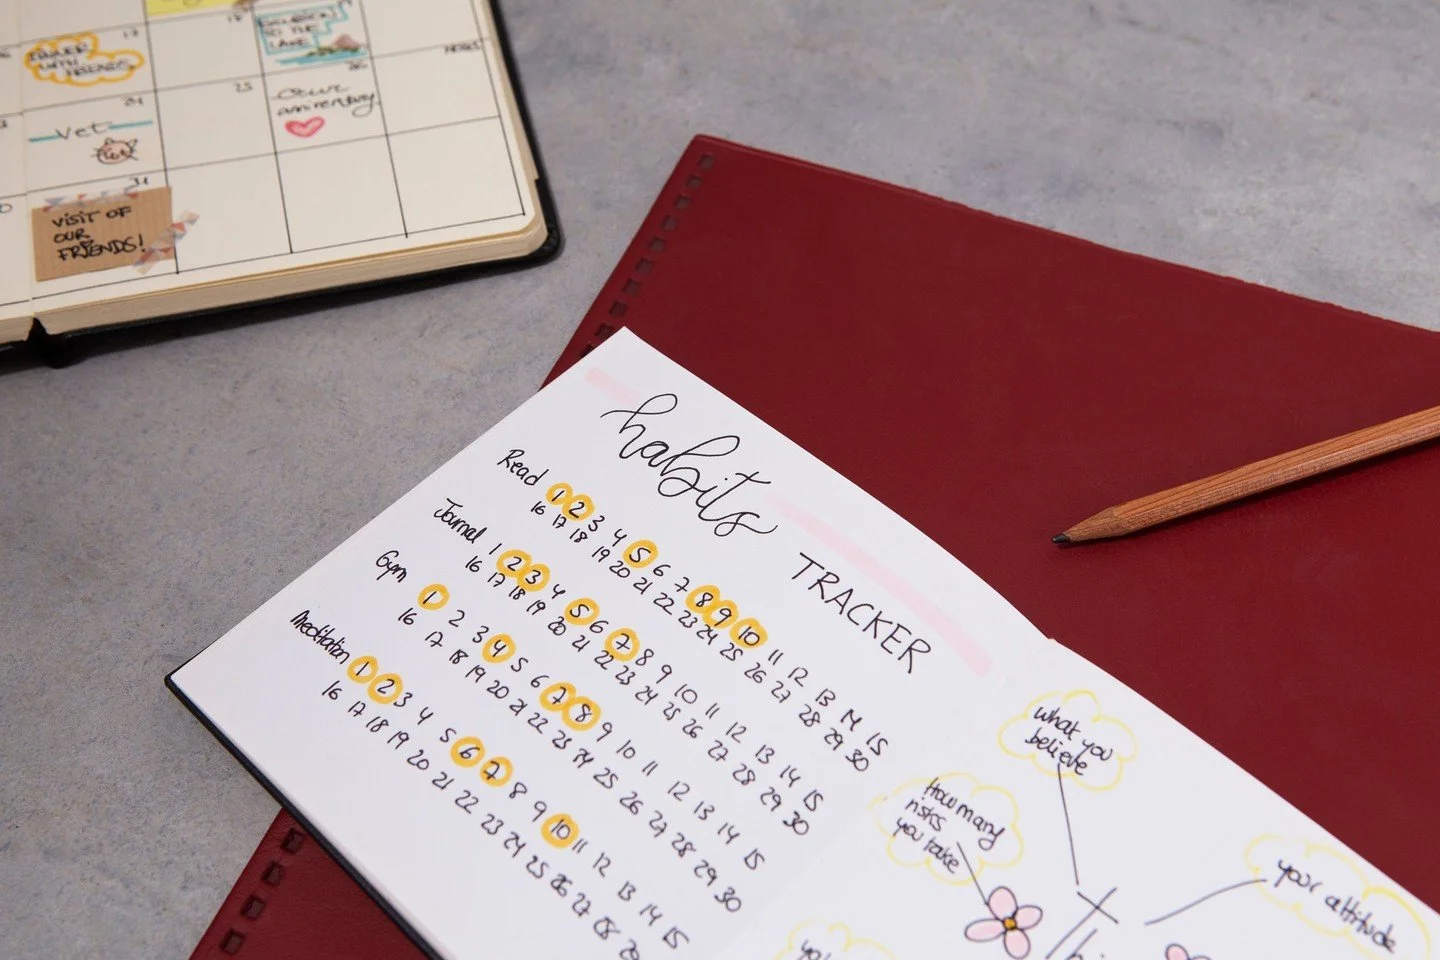 17
DINNER
WITH
FRIENDS
18
TO THE
LAKE
NOTES
24
Vet
25
26
our
aniversary
31
VISIT OF
OUR
FRIENDS!
habits TRACKER
Read 1 2 3 4 5 6 7 8 9 10 11 12 13 14 15
16 17 18 19 20 21 22 23 24 25 26 27 28 29 30
Journal 1 2 3 4 5 6 7 8 9 10 11 12 13 14 15
16 17 18 19 20 21 22 23 24 25 26 27 28 29 30
Gym 1 2 3 4 5 6 7 8 9 10 11 12 13 14 15
16 17 18 19 20 21 22 23 24 25 26 27 28 29 30
Meditation 1 2 3 4 5 6 7 8 9 10 11 12 13 14 15
16 17 18 19 20 21 22 23 24 25 26 27 28 29
what you
believe
How many
risks
you take
your attitude